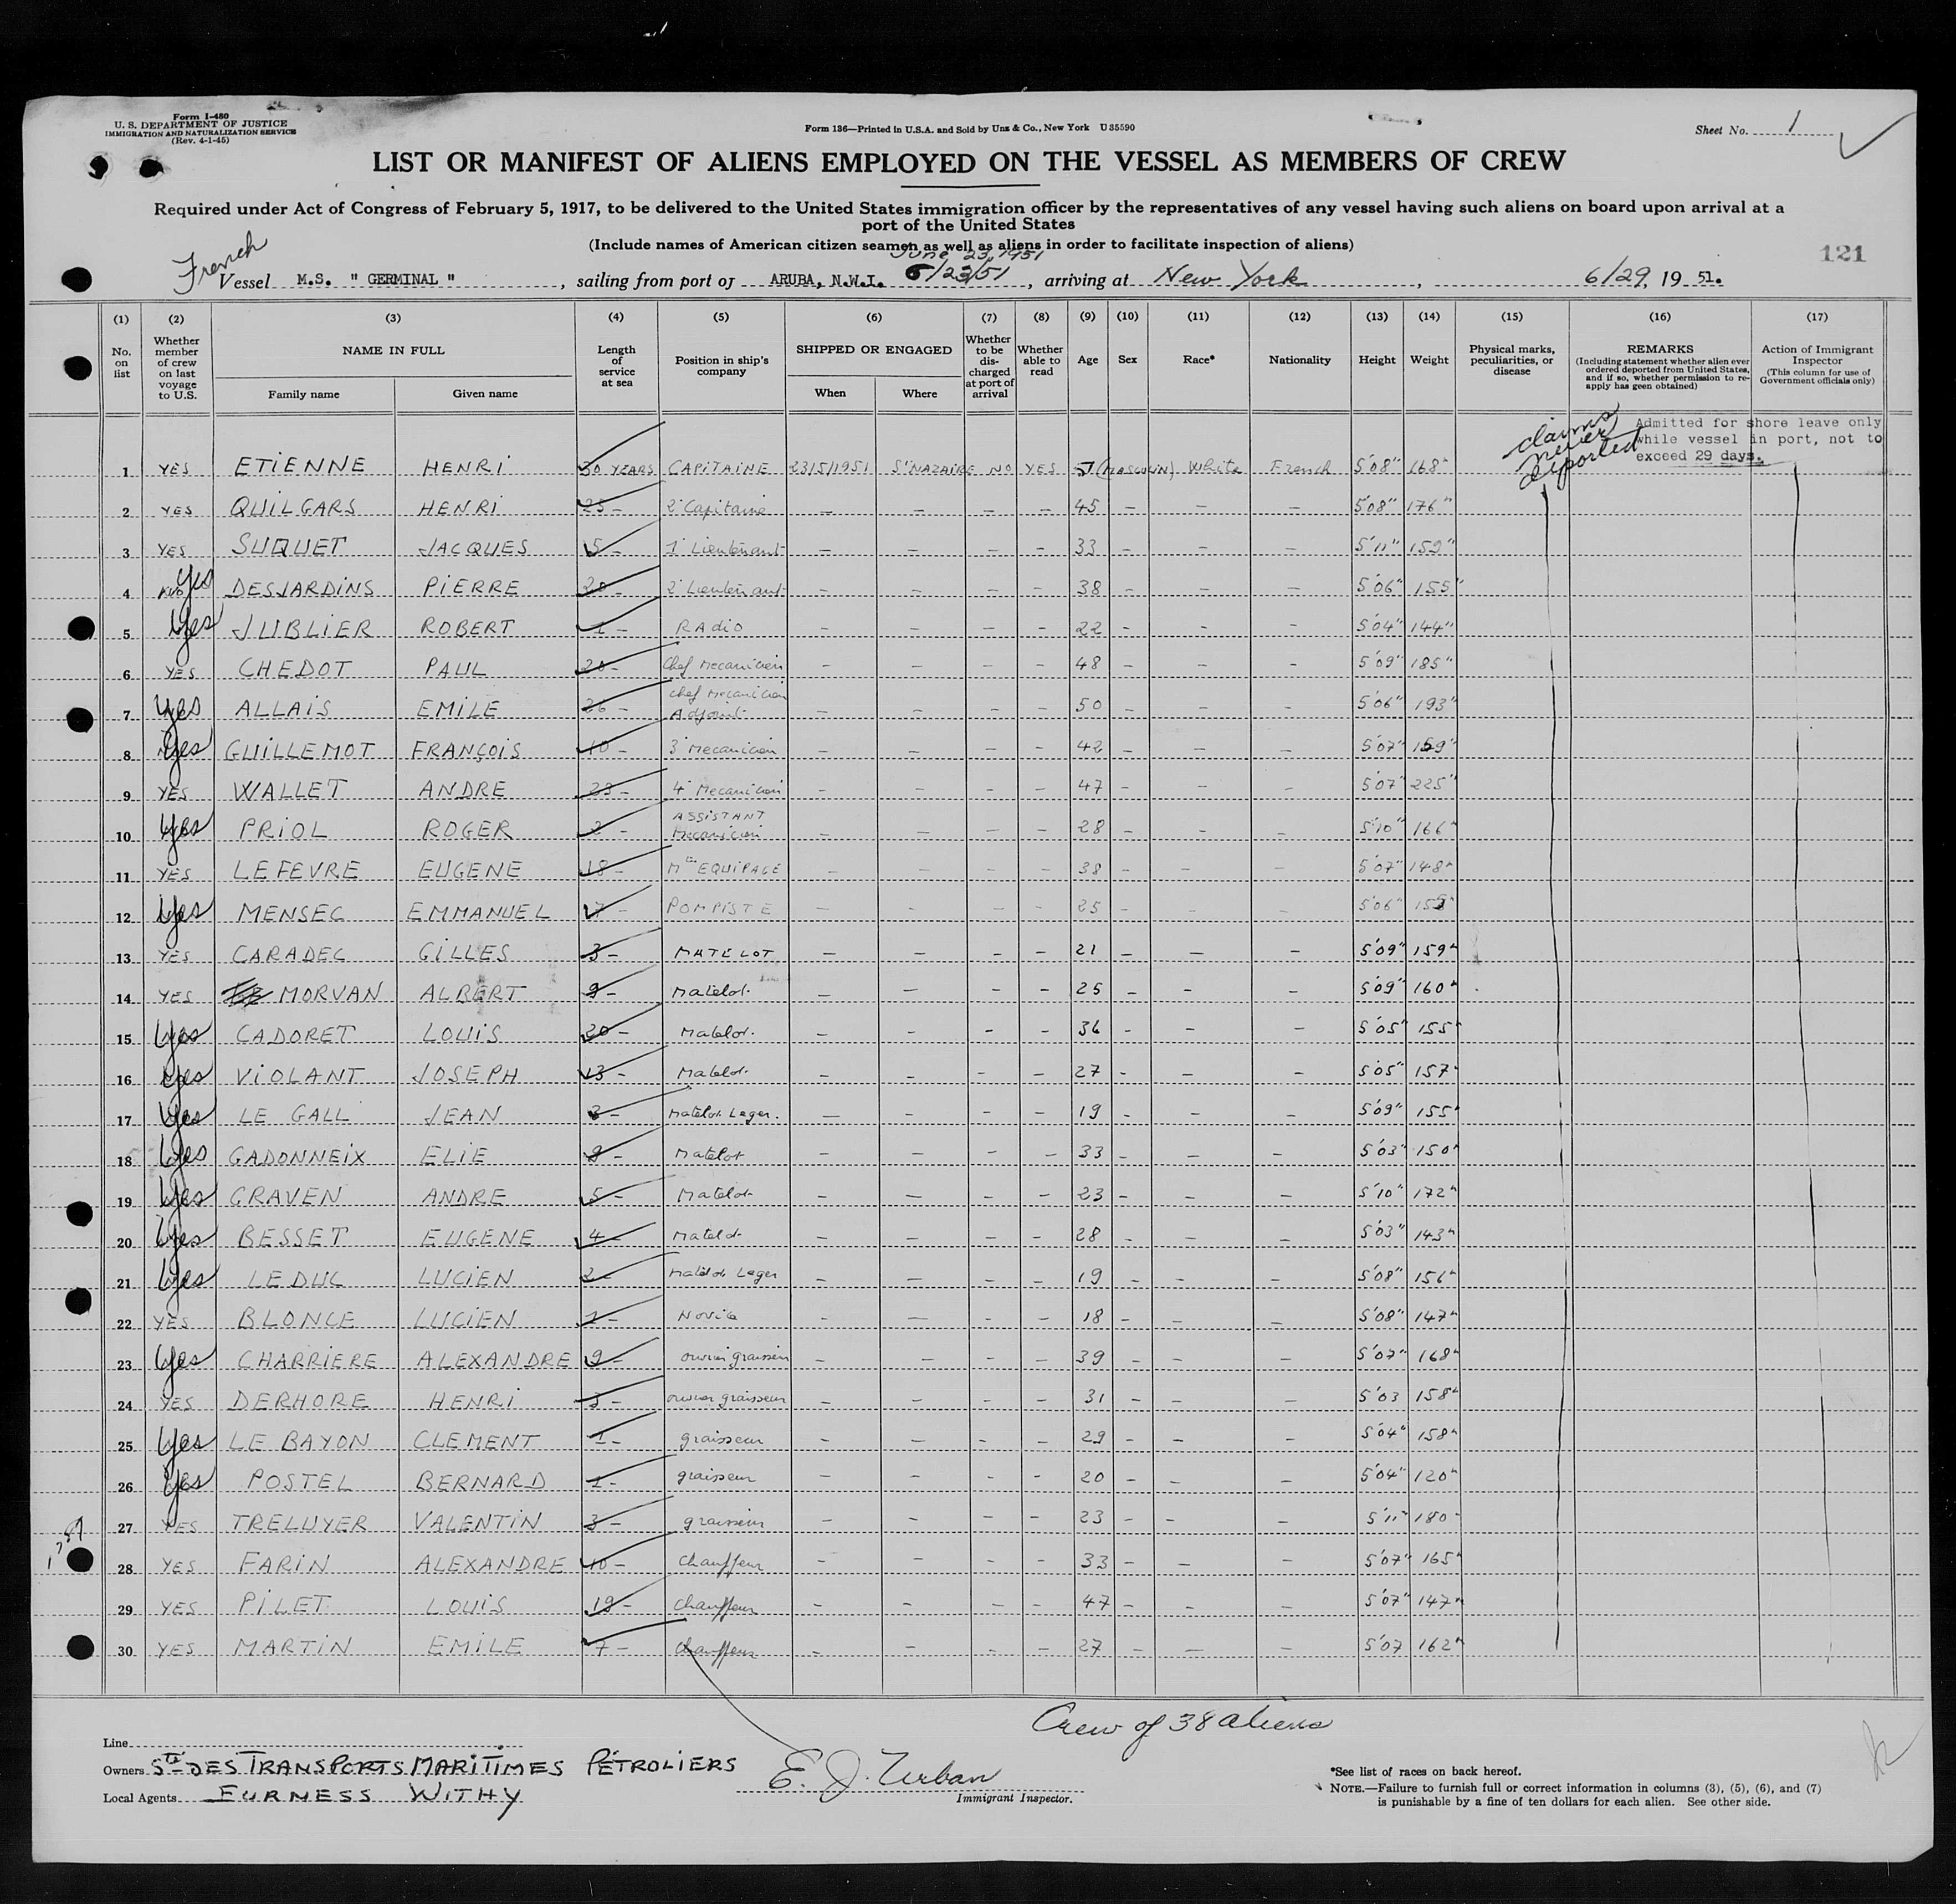 Form I-480
U. S. DEPARTMENT OF JUSTICE
IMMIGRATION AND NATURALIZATION SERVICE
(Rev. 4-1-45)
Form 136—Printed in U.S.A. and Sold by Unz & Co., New York U 35590
Sheet No. 1
LIST OR MANIFEST OF ALIENS EMPLOYED ON THE VESSEL AS MEMBERS OF CREW
Required under Act of Congress of February 5, 1917, to be delivered to the United States immigration officer by the representatives of any vessel having such aliens on board upon arrival at a
port of the United States
(Include names of American citizen seamen as well as aliens in order to facilitate inspection of aliens)
June 23, 1951
121
French
Vessel M.S. " GERMINAL " , sailing from port of ARUBA, N.W.I. 6/23/51 , arriving at New York , 6/29, 19 51.
(1) No. on list
(2) Whether member of crew on last voyage to U.S.
(3) NAME IN FULL Family name Given name
(4) Length of service at sea
(5) Position in ship's company
(6) SHIPPED OR ENGAGED When Where
(7) Whether to be discharged at port of arrival
(8) Whether able to read
(9) Age
(10) Sex
(11) Race*
(12) Nationality
(13) Height
(14) Weight
(15) Physical marks, peculiarities, or disease
(16) REMARKS (Including statement whether alien ever ordered deported from United States, and if so, whether permission to re-apply has geen obtained)
(17) Action of Immigrant Inspector (This column for use of Government officials only)
claims never deported
Admitted for shore leave only
while vessel in port, not to
exceed 29 days.
1 YES ETIENNE HENRI 30 YEARS CAPITAINE 23/5/1951 St NAZAIRE NO YES 51 (MASCULIN) White French 5'08" 168"
2 YES QUILGARS HENRI 25 – 2e Capitaine – – – – 45 – – – 5'08" 176"
3 YES SUQUET JACQUES 5 – 1e Lieutenant – – – – 33 – – – 5'11" 159"
4 Yes DESJARDINS PIERRE 20 – 2e Lieutenant – – – – 38 – – – 5'06" 155"
5 Yes JUBLIER ROBERT 1 – RADIO – – – – 22 – – – 5'04" 144"
6 YES CHEDOT PAUL 20 – Chef Mecanicien – – – – 48 – – – 5'09" 185"
7 Yes ALLAIS EMILE 26 – Chef Mecanicien Adjoint – – – – 50 – – – 5'06" 193"
8 Yes GUILLEMOT FRANÇOIS 10 – 3e Mecanicien – – – – 42 – – – 5'07" 159"
9 YES WALLET ANDRE 23 – 4e Mecanicien – – – – 47 – – – 5'07" 225"
10 Yes PRIOL ROGER 2 – ASSISTANT Mecanicien – – – – 28 – – – 5'10" 166"
11 YES LEFEVRE EUGENE 18 – Mtre EQUIPAGE – – – – 38 – – – 5'07" 148"
12 Yes MENSEC EMMANUEL 7 – POMPISTE – – – – 25 – – – 5'06"
13 YES CARADEC GILLES 3 – MATELOT – – – – 21 – – – 5'09" 159"
14 YES MORVAN ALBERT 9 – Matelot – – – – 25 – – – 5'09" 160"
15 Yes CADORET LOUIS 20 – Matelot – – – – 36 – – – 5'05" 155"
16 Yes VIOLANT JOSEPH 13 – Matelot – – – – 27 – – – 5'05" 157"
17 Yes LE GALL JEAN 3 – Matelot Leger – – – – 19 – – – 5'09" 155"
18 Yes GADONNEIX ELIE 8 – Matelot – – – – 33 – – – 5'03" 150"
19 Yes CRAVEN ANDRE 5 – Matelot – – – – 23 – – – 5'10" 172"
20 Yes BESSET EUGENE 4 – Matelot – – – – 28 – – – 5'03" 143"
21 Yes LEDUC LUCIEN 2 – Matelot Leger – – – – 19 – – – 5'08" 156"
22 YES BLONCE LUCIEN 1 – Novice – – – – 18 – – – 5'08" 147"
23 Yes CHARRIERE ALEXANDRE 9 – ouvrier graisseur – – – – 39 – – – 5'07" 168"
24 YES DERHORE HENRI 3 – ouvrier graisseur – – – – 31 – – – 5'03 158"
25 Yes LE BAYON CLEMENT 1 – graisseur – – – – 29 – – – 5'04" 158"
26 Yes POSTEL BERNARD 1 – graisseur – – – – 20 – – – 5'04" 120"
27 YES TRELUYER VALENTIN 3 – graisseur – – – – 23 – – – 5'11" 180"
28 YES FARIN ALEXANDRE 10 – Chauffeur – – – – 33 – – – 5'07" 165"
29 YES PILET LOUIS 19 – Chauffeur – – – – 47 – – – 5'07" 147"
30 YES MARTIN EMILE 7 – Chauffeur – – – – 27 – – – 5'07 162"
Crew of 38 aliens
Line
Owners Sté DES TRANSPORTS MARITIMES PÉTROLIERS
Local Agents FURNESS WITHY
E. J. Urban
Immigrant Inspector.
*See list of races on back hereof.
NOTE.—Failure to furnish full or correct information in columns (3), (5), (6), and (7)
is punishable by a fine of ten dollars for each alien. See other side.